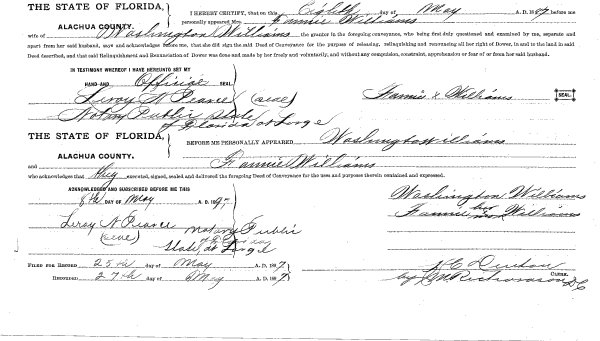 THE STATE OF FLORIDA,
ALACHUA COUNTY.
I HEREBY CERTIFY, that on this Eighth day of May A. D. 1897 before me
personally appeared Mrs. Fannie Williams
wife of Washington Williams the grantor in the foregoing conveyance, who being first duly questioned and examined by me, separate and
apart from her said husband, says and acknowledges before me, that she did sign the said Deed of Conveyance for the purpose of releasing, relinquishing and renouncing all her right of Dower, in and to the land in said
Deed described, and that said Relinquishment and Renunciation of Dower was done and made by her freely and voluntarily, and without any compulsion, constraint, apprehension or fear of or from her said husband.
IN TESTIMONY WHEREOF I HAVE HEREUNTO SET MY
HAND AND Official SEAL
Leroy N Pearce (seal)
Notary Public State
of Florida at Large
Fannie x Williams SEAL.
THE STATE OF FLORIDA,
ALACHUA COUNTY.
BEFORE ME PERSONALLY APPEARED Washington Williams
and Fannie Williams
who acknowledges that they executed, signed, sealed and delivered the foregoing Deed of Conveyance for the uses and purposes therein contained and expressed.
ACKNOWLEDGED AND SUBSCRIBED BEFORE ME THIS
8th DAY OF May A. D. 1897
Leroy N Pearce Notary Public
(seal)
State at Large
Washington Williams
Fannie her Williams
FILED FOR RECORD 25th day of May A. D. 1897
RECORDED 27th day of May A. D. 1897
CLERK.
by Richardson D C